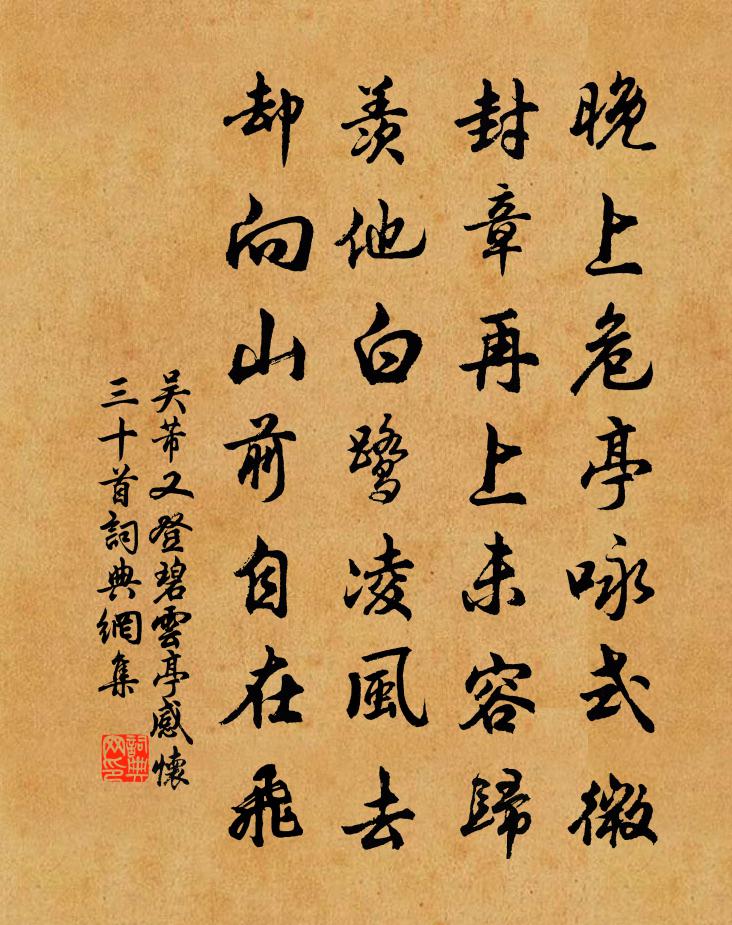 晚上危亭咏式微
封章再上未容歸
羨他白鷺凌風去
却向山前自在飛
吴芾又登碧雲亭感懷
三十首詞典網集
詞典网印